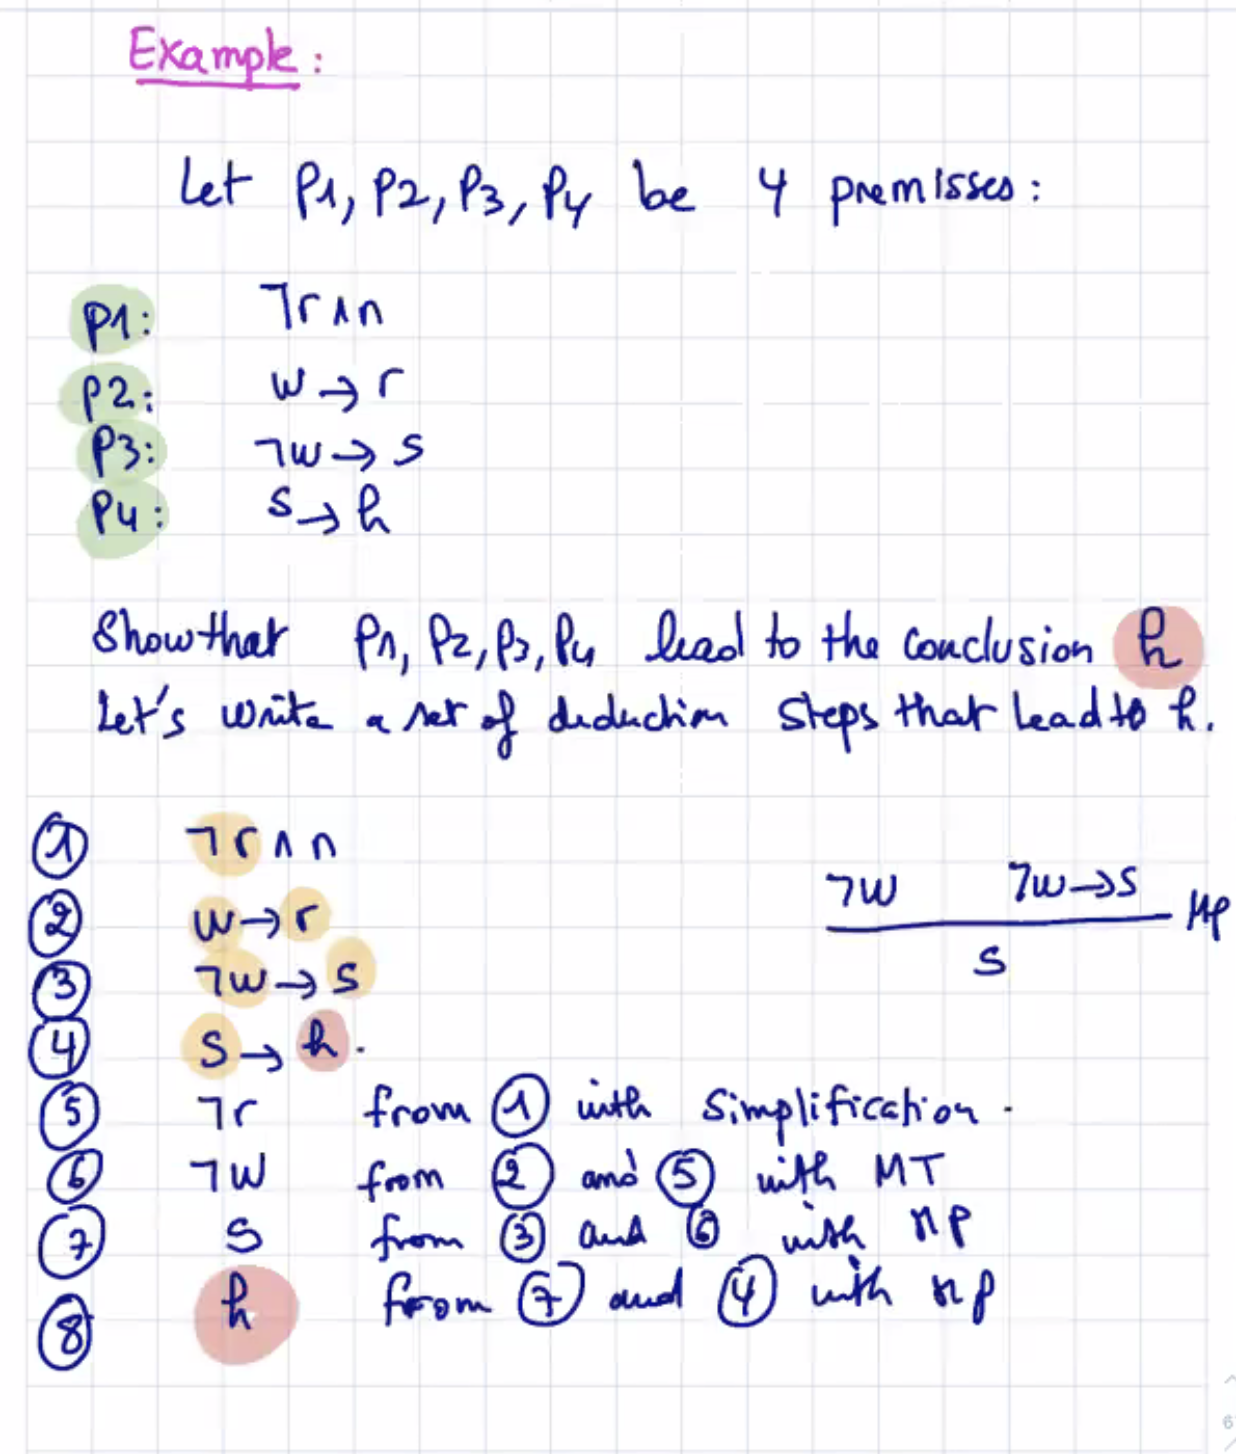 Example:
Let P1, P2, P3, P4 be 4 premisses:
P1: ¬r∧n
P2: w→r
P3: ¬w→s
P4: s→h
Show that P1, P2, P3, P4 lead to the conclusion h
Let's write a set of deduction steps that lead to h.
① ¬r∧n
② w→r
③ ¬w→s
④ s→h.
¬w ¬w→s MP
s
⑤ ¬r from ① with Simplification.
⑥ ¬w from ② and ⑤ with MT
⑦ s from ③ and ⑥ with MP
⑧ h from ⑦ and ④ with MP